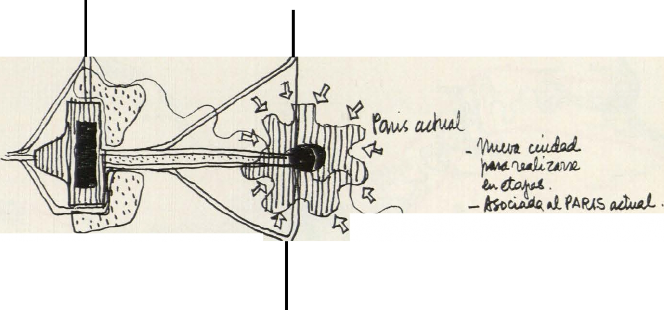 Paris actual
- Nueva ciudad
para realizarse
en etapas.
- Asociada al PARIS actual.